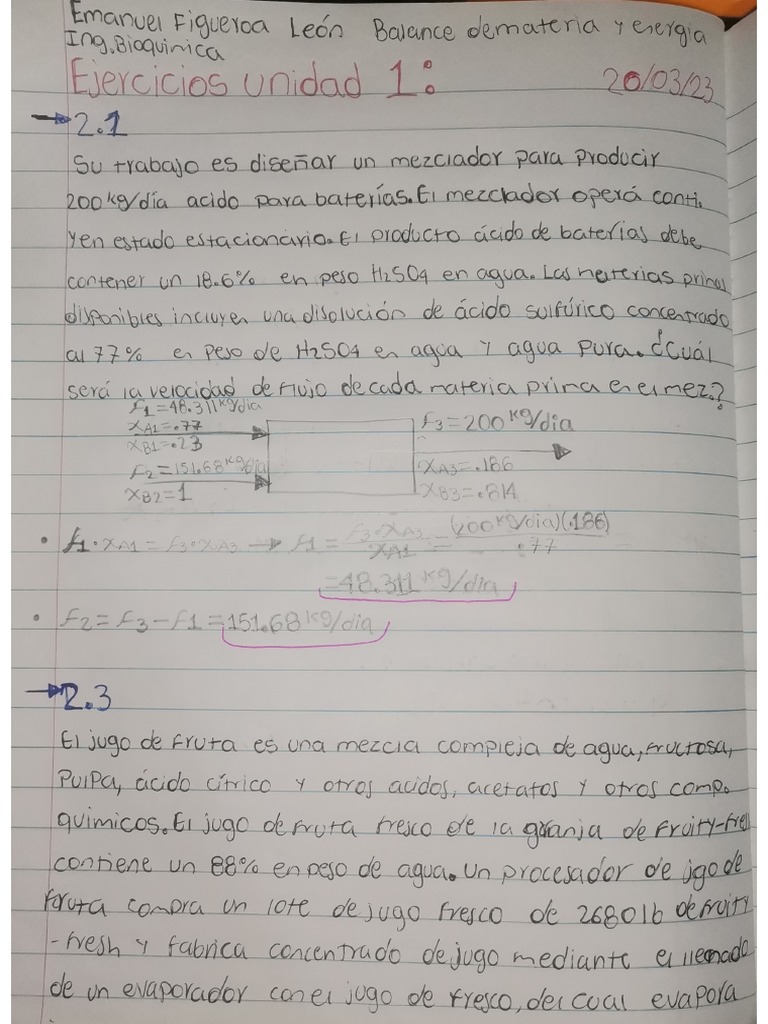 Emanuel Figueroa León Balance de materia y energia
Ing. Bioquinica
Ejercicios unidad 1:
20/03/23
→2.1
Su trabajo es diseñar un mezclador para producir
200 kg/día acido para baterías. El mezclador operá conti.
y en estado estacionario. El producto ácido de baterías debe
contener un 18.6% en peso H2SO4 en agua. Las materias primas
disponibles incluyen una disolución de ácido sulfúrico concentrado
al 77% en peso de H2SO4 en agua y agua pura. ¿Cuál
será la velocidad de flujo de cada materia prima en el mez.?
F1=48.311 kg/dia
XA1=.77
XB1=.23
F2=151.68 kg/dia
XB2=1
F3=200 kg/dia
XA3=.186
XB3=.814
• F1·XA1=F3·XA3 → F1=F3·XA3/XA1=(200 kg/dia)(.186)/.77
=48.311 kg/dia
• F2=F3-F1=151.68 kg/dia
→2.3
El jugo de fruta es una mezcla compleja de agua, fructosa,
pulpa, ácido cítrico y otros acidos, acetatos y otros comp.
quimicos. El jugo de fruta fresco de la granja de Fruity-fre
contiene un 88% en peso de agua. Un procesador de jgo de
fruta compra un lote de jugo fresco de 2680 lb de fruity
-fresh y fabrica concentrado de jugo mediante el llenado
de un evaporador con el jugo de fresco, del cual evapora